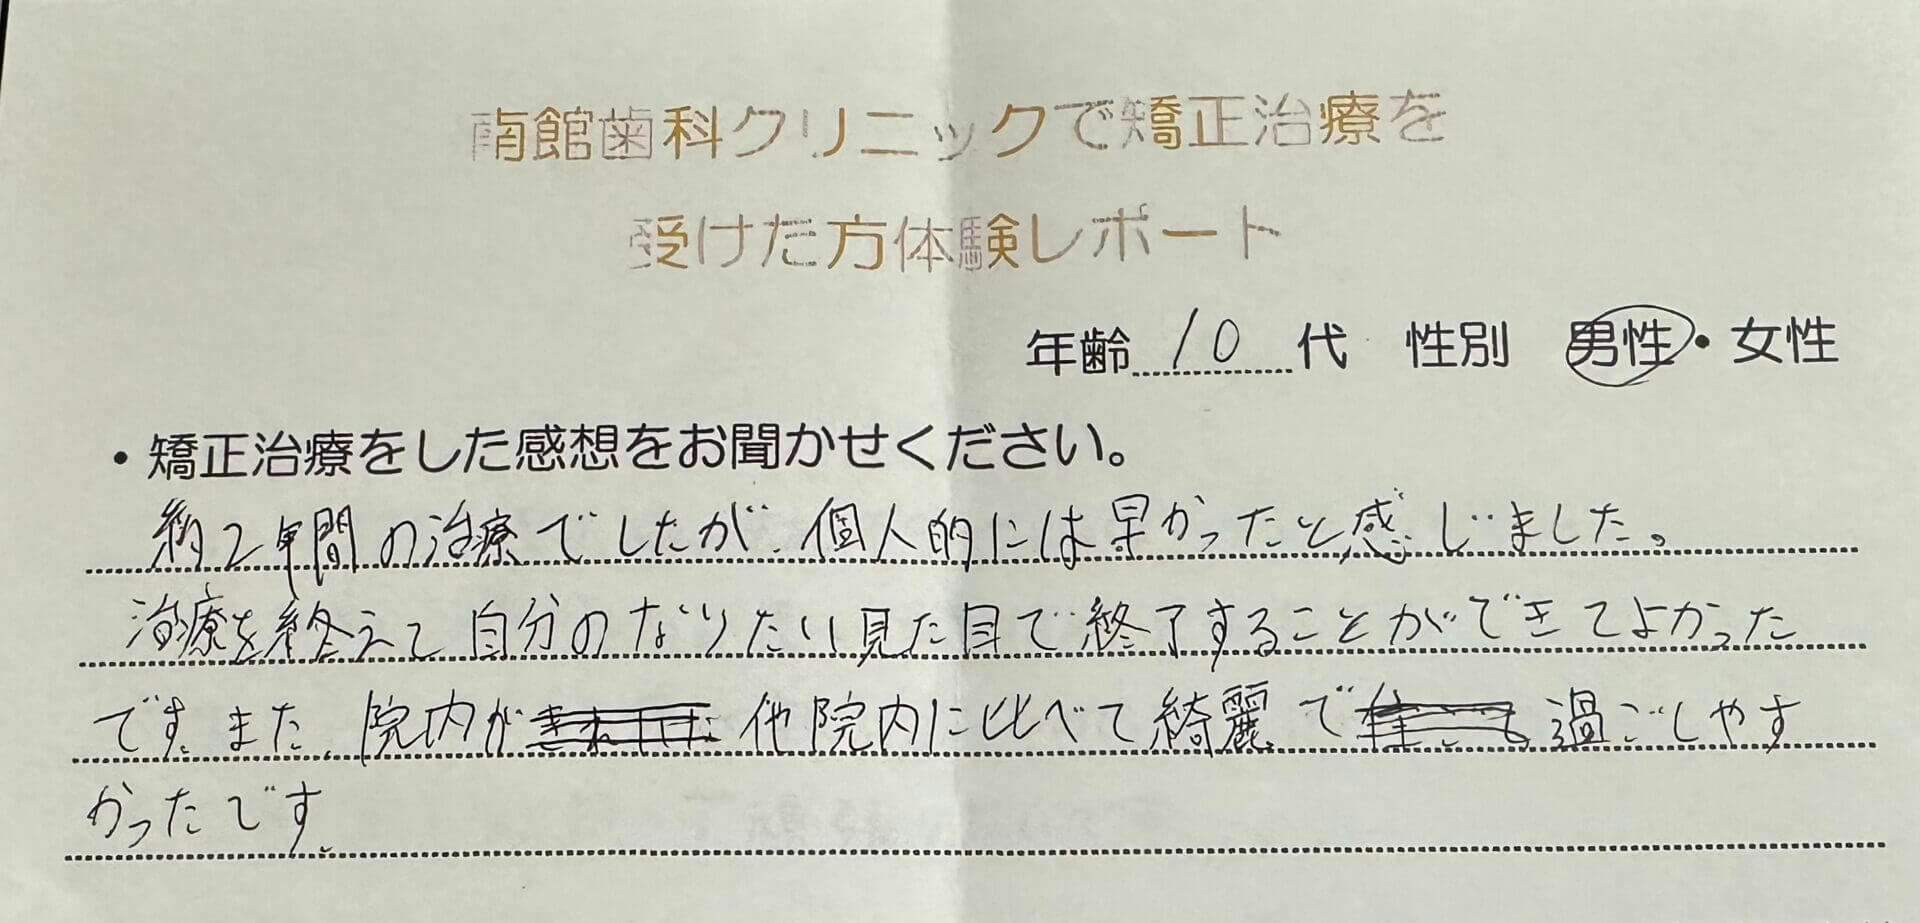 南館歯科クリニックで矯正治療を
受けた方体験レポート
年齢 10 代 性別 男性・女性
・矯正治療をした感想をお聞かせください。
約2年間の治療でしたが、個人的には早かったと感じました。
治療を終えて自分のなりたい見た目で終了することができてよかった
です。また、院内が他院内に比べて綺麗で過ごしやす
かったです。